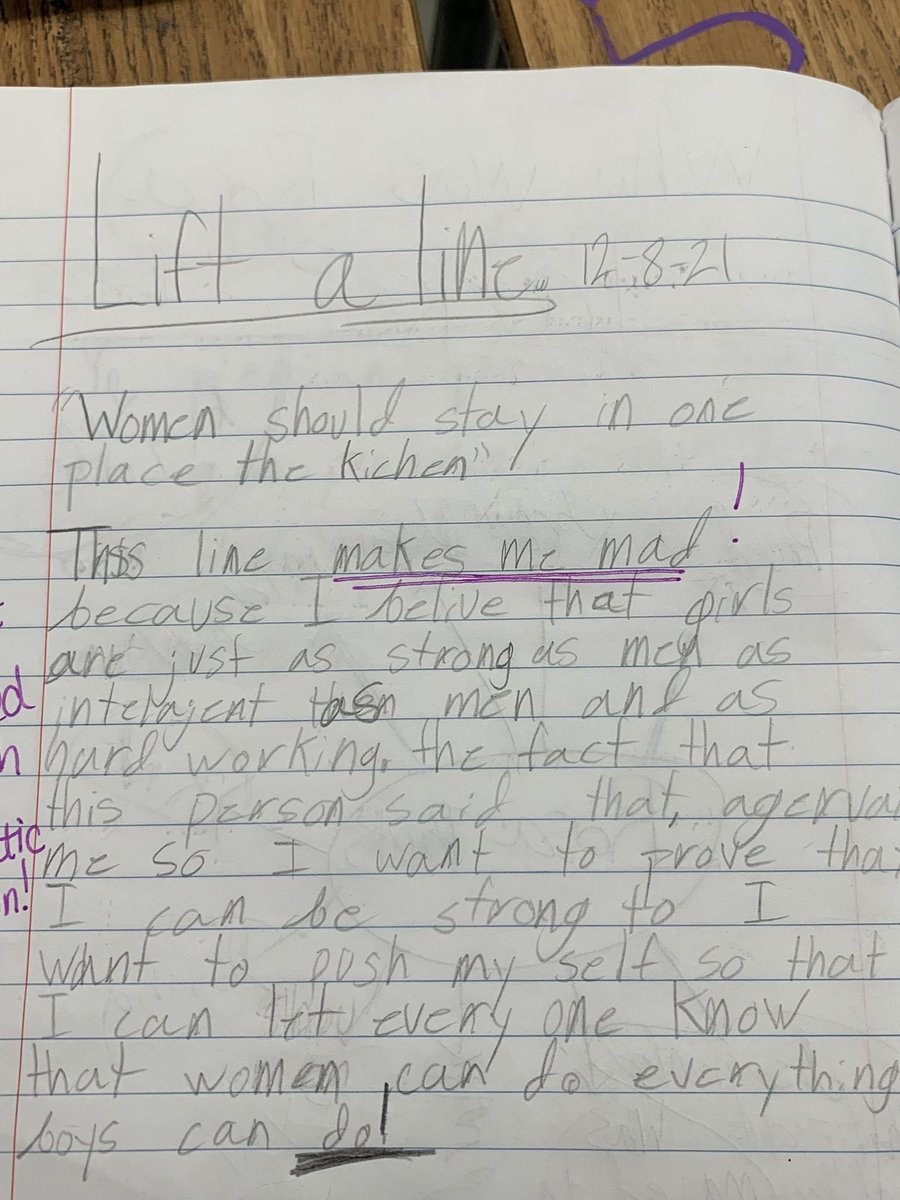 Lift a line 12-8-21
"Women should stay in one
place the kichen"
This line makes me mad !
because I belive that girls
are just as strong as men as
intelajent as men and as
hard working. the fact that
this person said that, agerva
me so I want to prove tha
I can be strong to I
want to push my self so that
I can let every one know
that women can do everything
boys can do!
d
n
tic
n!